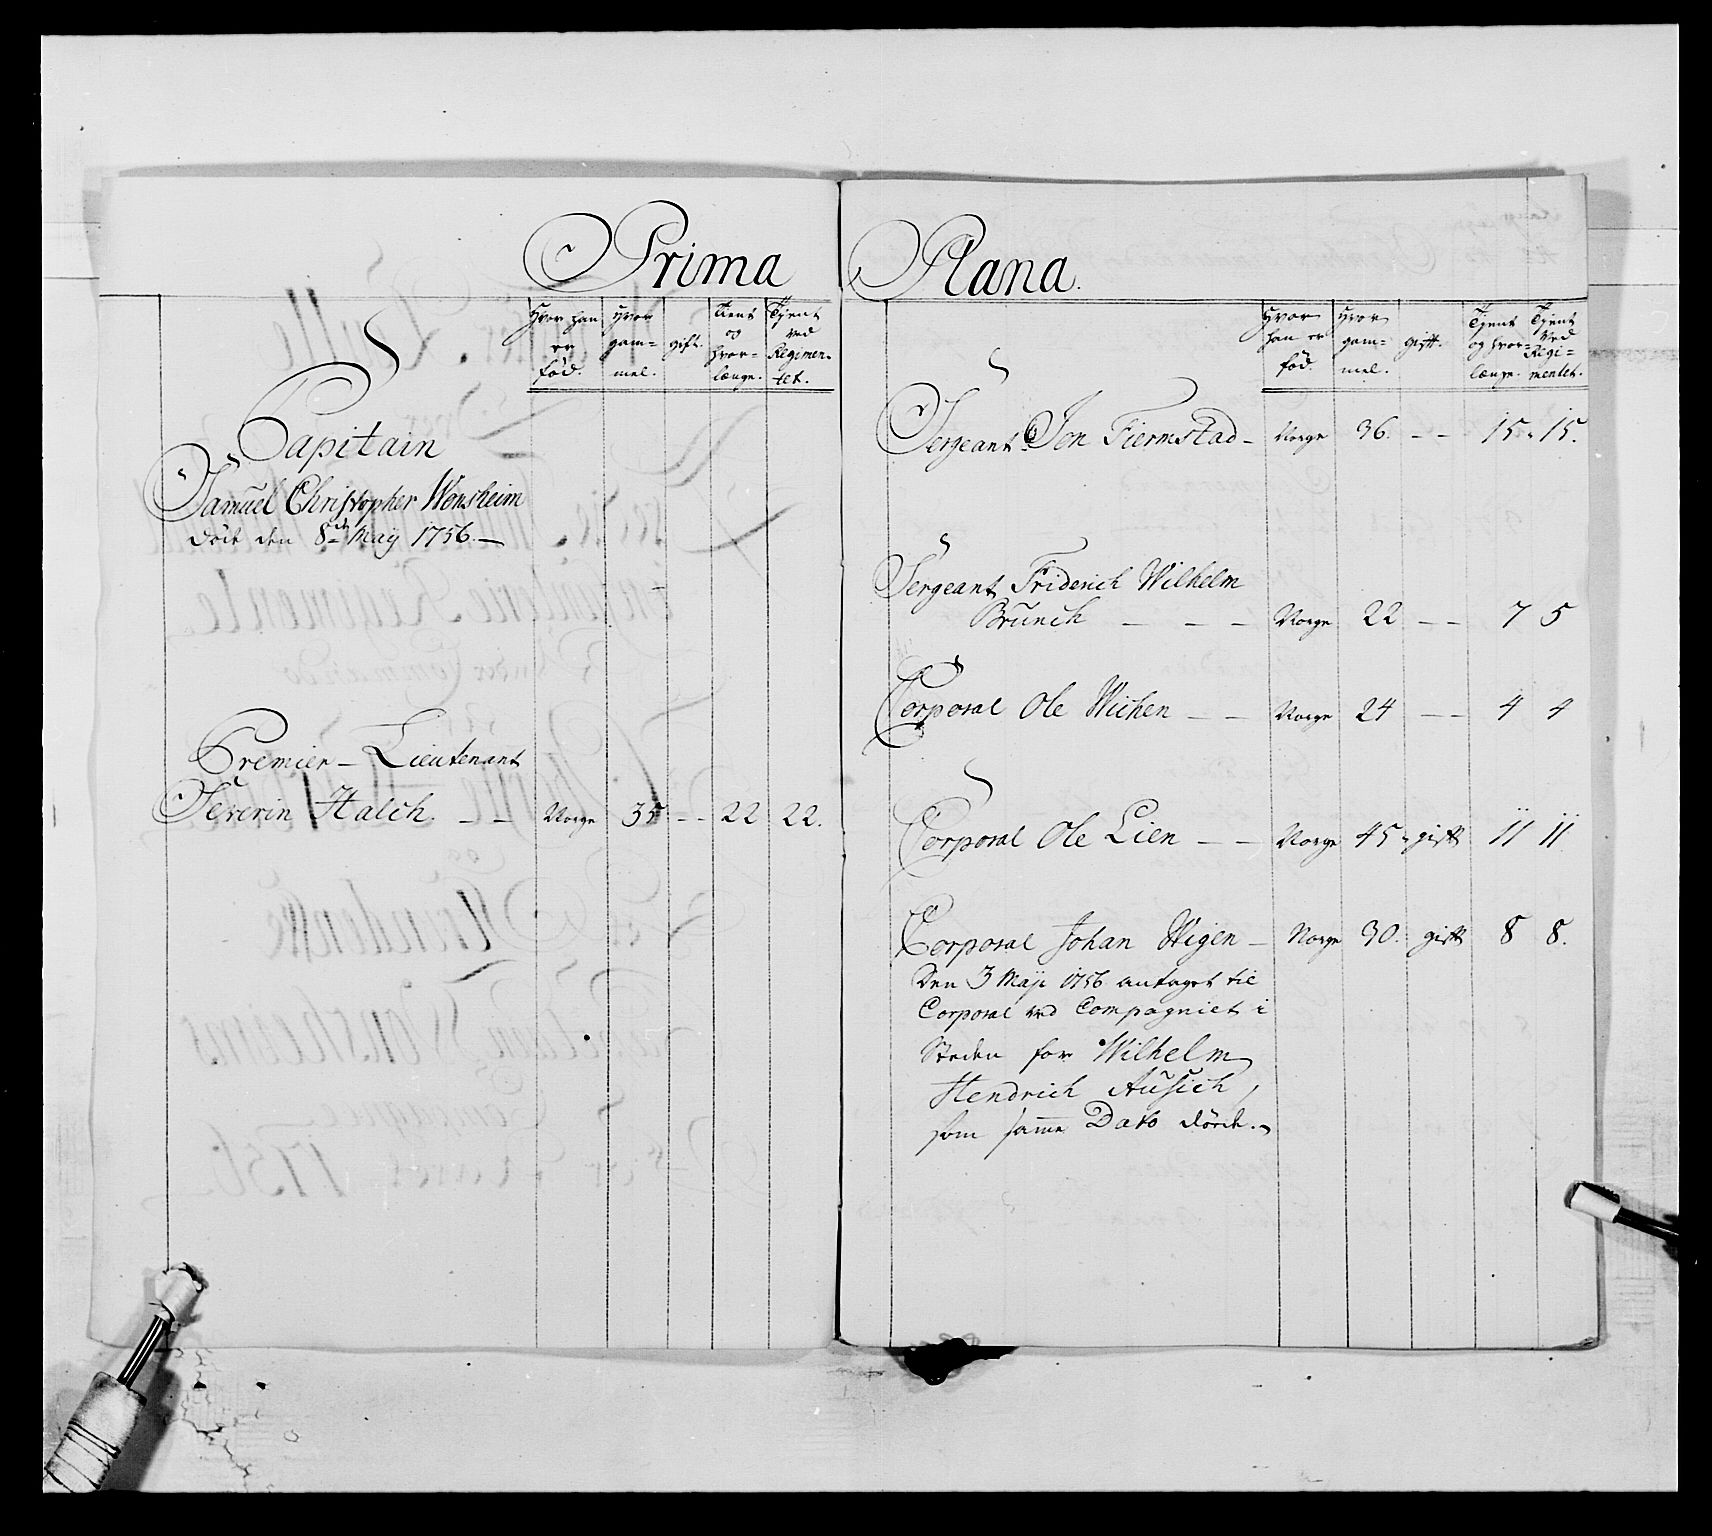 Prima
Hvor han er fød.
Hvor gam= mel.
gift.
Tient og hvor= længe.
Tjent ved Regimen= tet.
Capitain
Samuel Christopher Wonsheim
Döde den 8de Maÿ 1756.
Premier - Lieutenant
Severin Halch. - - Norge 35 - - 22 22.
Plana.
Hvor han er fød.
Hvor gam= mel.
gift.
Tjent og hvor= længe.
Tjent ved Regi= mentet.
Sergeant Jon Fiermstad - Norge 36. - - 15. 15.
Sergeant Friderich Wilhelm
Brunch - - - Norge 22 - - 7 5
Corporal Ole Wichen - - Norge 24 - - 4 4
Corporal Ole Lien - - Norge 45 gift 11 11
Corporal Johan Wigen - Norge 30. gift 8 8.
Den 3 Maji 1756 antaget til
Corporal ved Compagniet i
Steden for Wilhelm
Hendrich Ausich,
som samme Dato döde.